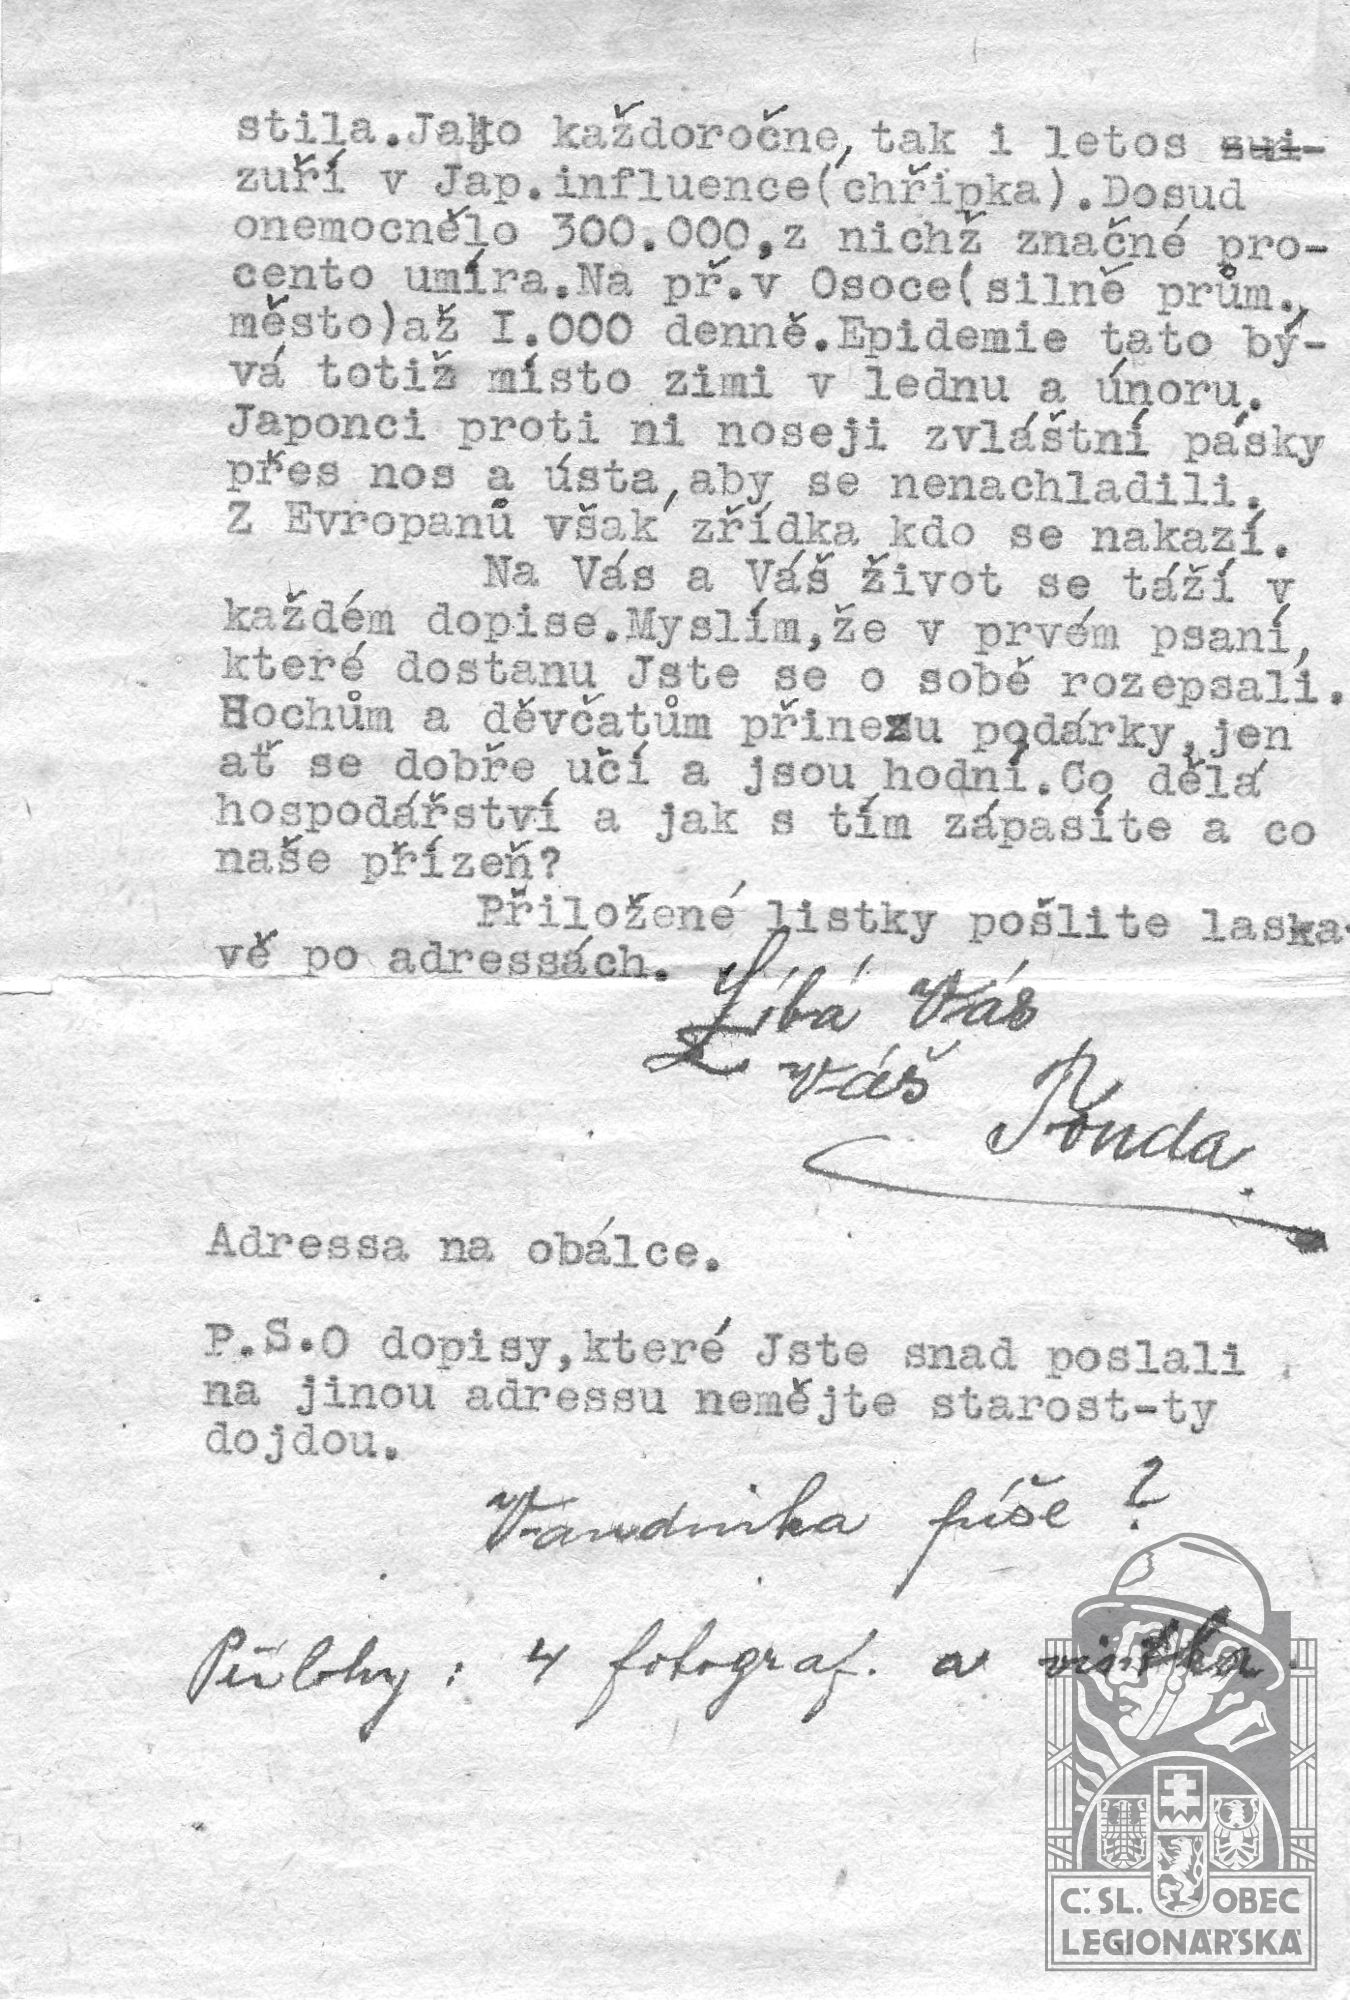 stila.Jako každoročne,tak i letos sui-
zuří v Jap.influence(chřipka).Dosud
onemocnělo 300.000,z nichž značné pro-
cento umíra.Na př.v Osoce(silně prům.,
město)až I.000 denně.Epidemie tato bý-
vá totiž místo zimi v lednu a únoru.
Japonci proti ni noseji zvláštní pásky
přes nos a ústa,aby se nenachladili.
Z Evropanů však zřídka kdo se nakazí.
Na Vás a Váš život se táží v
každém dopise.Myslím,že v prvém psaní,
které dostanu Jste se o sobě rozepsali.
Hochům a děvčatům přinezu podárky,jen
ať se dobře učí a jsou hodní.Co dělá
hospodářství a jak s tím zápasíte a co
naše přízeň?
Přiložené listky pošlite laska-
vě po adressách.
Líbá Vás
Váš Tonda.
Adressa na obálce.
P.S.O dopisy,které Jste snad poslali
na jinou adressu nemějte starost-ty
dojdou.
píše ?
Přílohy : 4 fotograf. a vizitka.
Č.SL. OBEC
LEGIONÁŘSKÁ